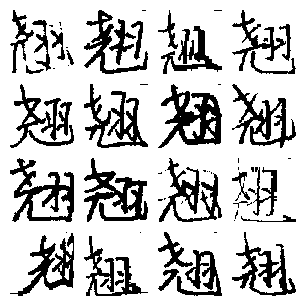 翘翘翘翘
翘翘翘翘
翘翘翘翘
翘翘翘翘